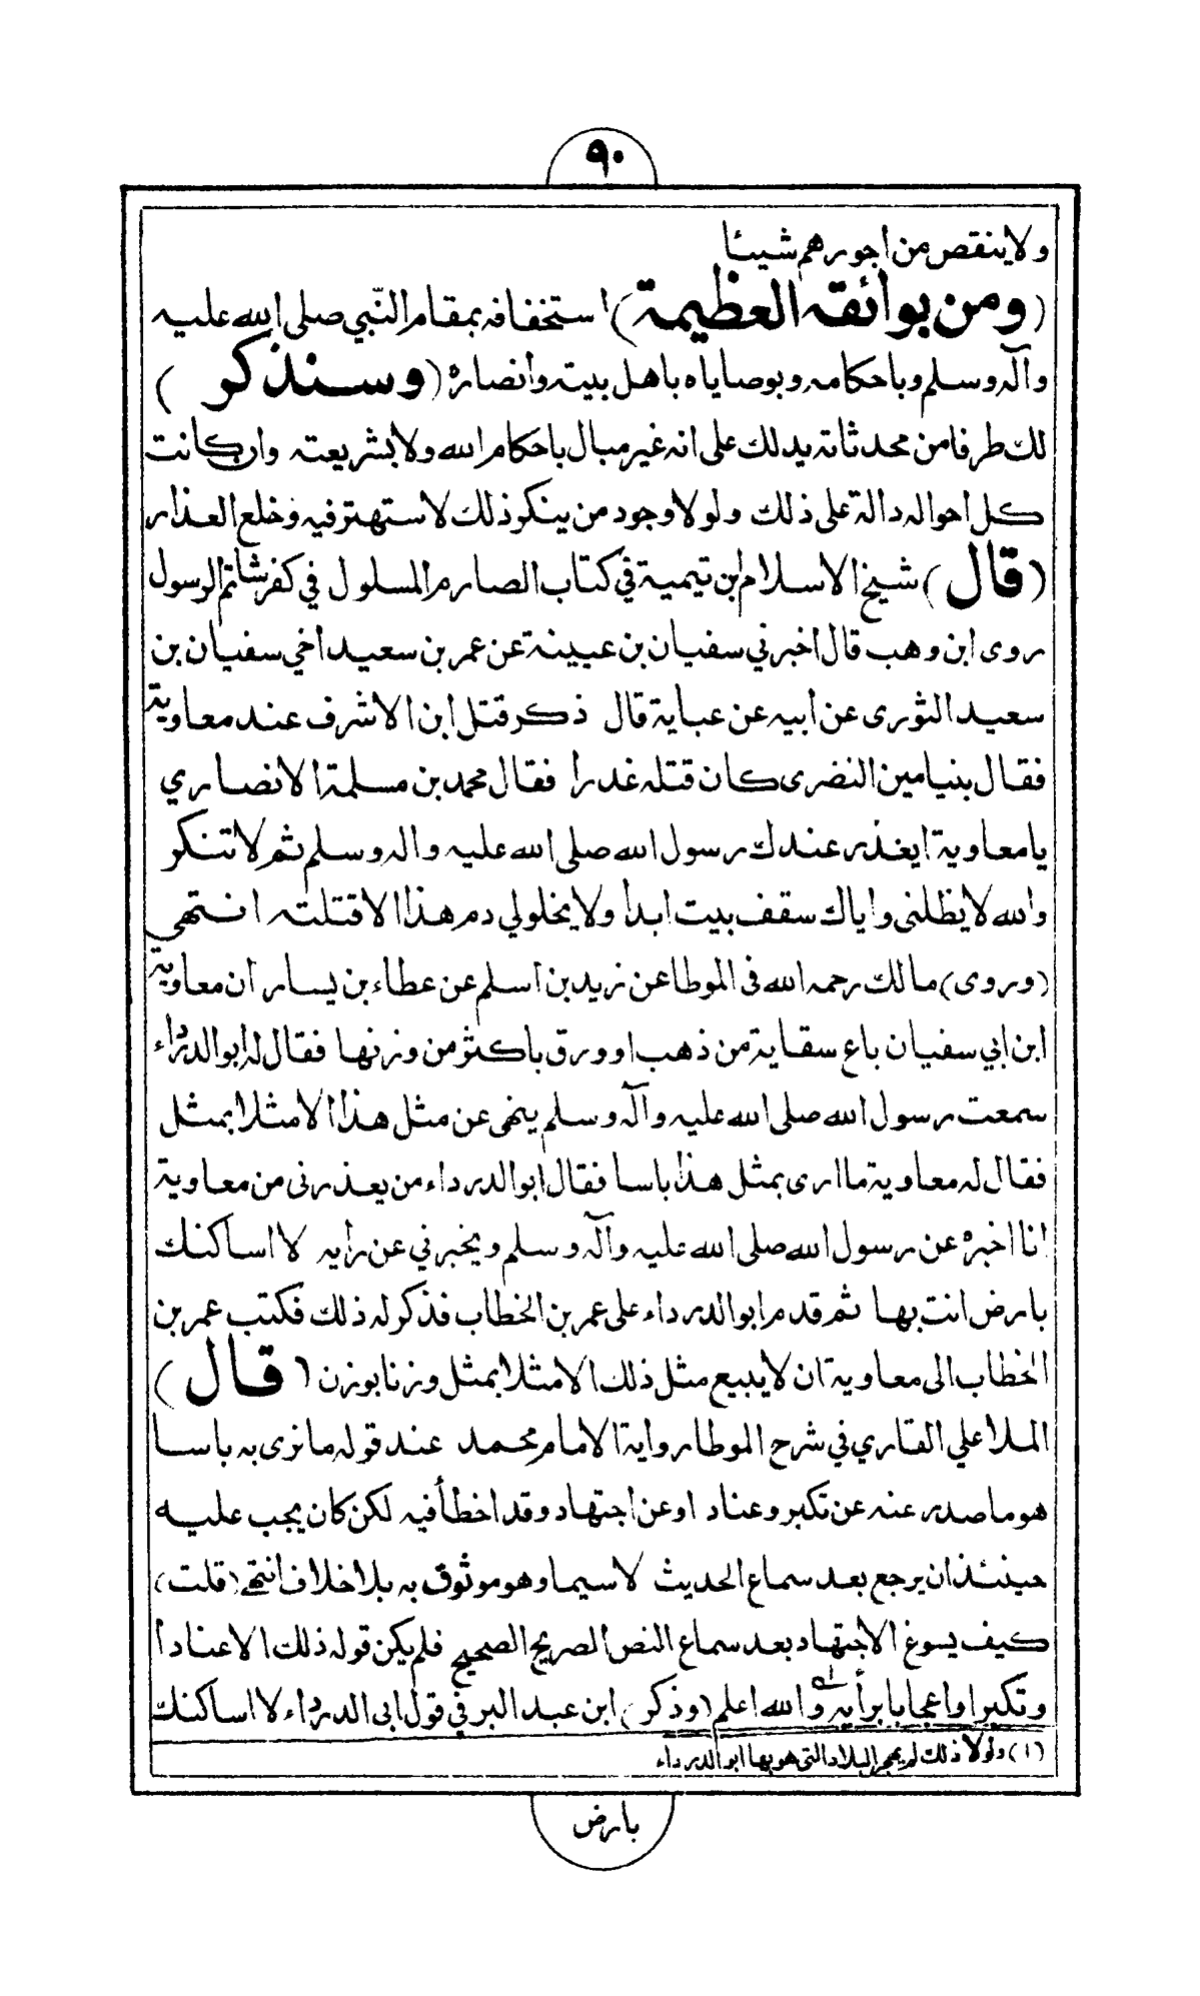 ٩٠
ولا ينقص من اجورهم شيئا
(ومن بوائقه العظيمة) استخفافه بمقام النّبي صلى الله عليه
وآله وسلم وباحكامه وبوصاياه باهل بيته وأنصاره (وسنذكر)
لك طرفا من محدثاته يدلك على انه غير مبال باحكام الله ولا بشريعته وان كانت
كل احواله دالة على ذلك ولولا وجود من ينكر ذلك لاستهتر فيه وخلع العذار
(قال) شيخ الاسلام ابن تيمية في كتاب الصارم المسلول في كفر شاتم الرسول
روى ابن وهب قال اخبرني سفيان بن عيينة عن عمر بن سعيد اخي سفيان بن
سعيد الثورى عن ابيه عن عباية قال ذكر قتل ابن الاشرف عند معاوية
فقال بنيامين النضرى كان قتله غدرا فقال محمد بن مسلمة الانصاري
يا معاوية ايغدر عندك رسول الله صلى الله عليه واله وسلم ثم لا تنكر
والله لا يظلنى واياك سقف بيت ابدا ولا يخلولي دم هذا الا قتلته انتهى
(وروى) مالك رحمه الله في الموطا عن زيد بن اسلم عن عطاء بن يسار ان معاوية
ابن ابي سفيان باع سقاية من ذهب او ورق باكثر من وزنها فقال له ابو الدرداء
سمعت رسول الله صلى الله عليه وآله وسلم ينهى عن مثل هذا الا مثلا بمثل
فقال له معاوية ما ارى بمثل هذا باسا فقال ابو الدرداء من يعذرنى من معاوية
انا اخبره عن رسول الله صلى الله عليه وآله وسلم ويخبرني عن رأيه لا اساكنك
بارض انت بها ثم قدم ابو الدرداء على عمر بن الخطاب فذكر له ذلك فكتب عمر بن
الخطاب الى معاوية ان لا يبيع مثل ذلك الا مثلا بمثل وزنا بوزن (قال)
الملا علي القاري في شرح الموطا رواية الامام محمد عند قوله ما نرى به باسا
هو ما صدر عنه عن تكبر وعناد او عن اجتهاد وقد اخطأ فيه لكن كان يجب عليه
حينئذ ان يرجع بعد سماع الحديث لا سيما وهو موثوق به بلا خلاف انتهى (قلت)
كيف يسوغ الاجتهاد بعد سماع النص الصريح الصحيح فلم يكن قوله ذلك الا عنادا
وتكبرا واعجابا برأيه (١) والله اعلم (وذكر) ابن عبد البر في قول ابى الدرداء لا اساكنك
(١) ولولا ذلك لم يهجر البلاد التي هو بها ابو الدرداء
بارض